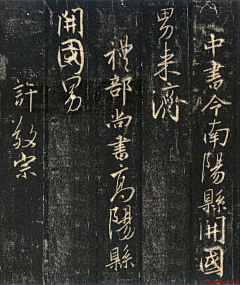 中書令南陽縣開國
男來濟
禮部尚書高陽縣
開國男
許敬宗